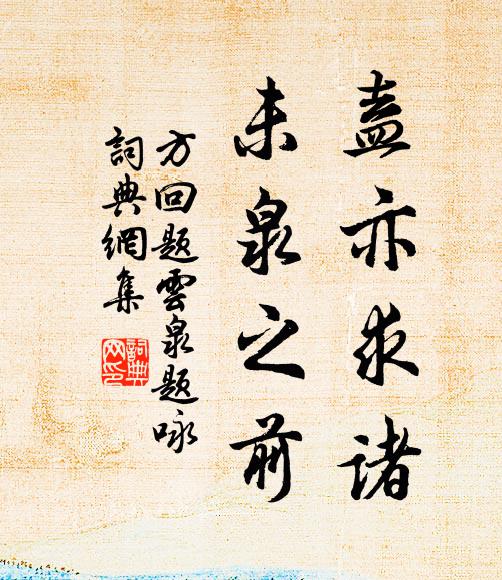 盍亦求诸
未泉之前
方回题雲泉题咏
詞典網集
詞典網印